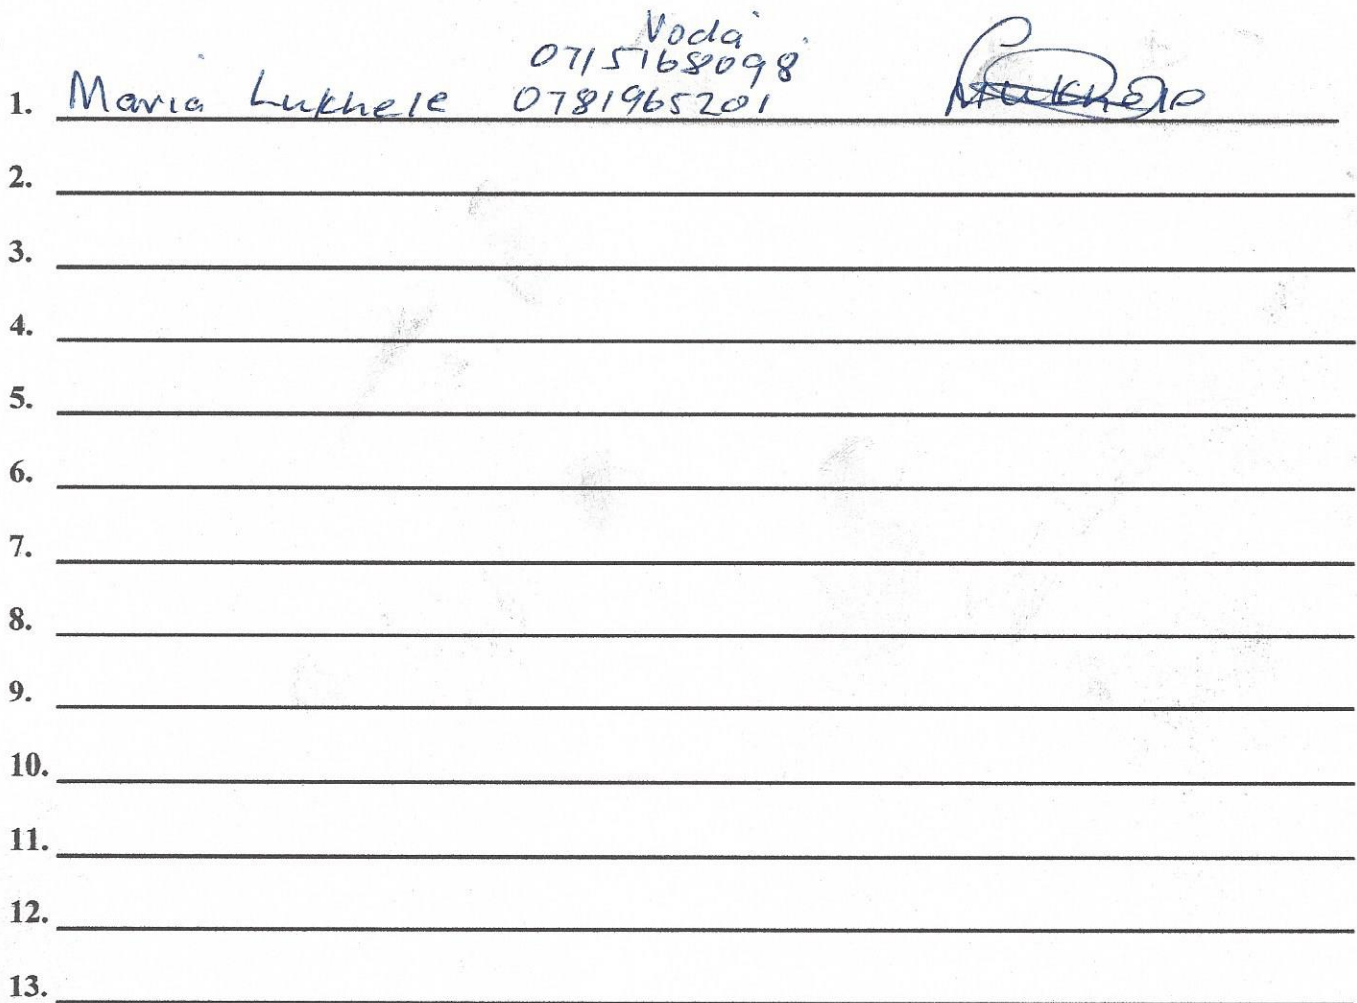 Voda
07151168098
1. Maria Lukhele 0781965201
2.
3.
4.
5.
6.
7.
8.
9.
10.
11.
12.
13.